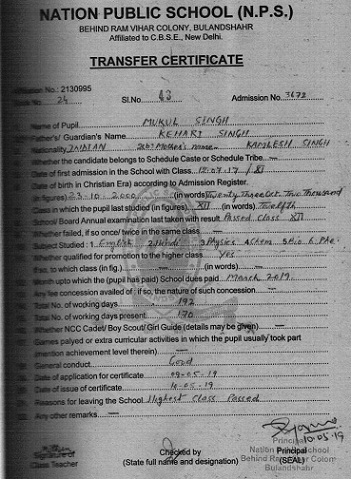 NATION PUBLIC SCHOOL (N.P.S.)
BEHIND RAM VIHAR COLONY, BULANDSHAHR
Affiliated to C.B.S.E., New Delhi.
TRANSFER CERTIFICATE
No. : 2130995
24 Sl.No. 43 Admission No. 3672
Name of Pupil MUKUL SINGH
Father's/ Guardian's Name KEHARI SINGH
Nationality INDIAN Mother's name KAMLESH SINGH
Whether the candidate belongs to Schedule Caste or Schedule Tribe —
Date of first admission in the School with Class 12-07-17 / XI
Date of birth in Christian Era) according to Admission Register.
(in figures) 23-10-2000 (in words) Twenty Three Oct Two Thousand
Class in which the pupil last studied (in figures) XII (in words) Twelfth
School/ Board Annual examination last taken with result Passed Class XII
Whether failed, if so once/ twice in the same class —
Subject Studied : 1. English 2. Hindi 3. Physics 4. Chem. 5. Bio 6. PhE.
Whether qualified for promotion to the higher class Yes
If so, to which class (in fig.) — (in words) —
Month upto which the (pupil has paid) School dues paid March 2019.
Any fee concession availed of : if so, the nature of such concession —
Total No. of working days 192
Total No. of working days present 170
Whether NCC Cadet/ Boy Scout/ Girl Guide (details may be given) —
Games palyed or extra curricular activities in which the pupil usually took part
(mention achievement level therein) —
General conduct Good
Date of application for certificate 09-05-19
Date of issue of certificate 10-05-19
Reasons for leaving the School Highest Class Passed
Any other remarks —
10.05.19
Signature of Class Teacher
Checked by
(State full name and designation)
Principal
(SEAL)
Principal
Nation Public School
Behind Ram Vihar Colony
Bulandshahr